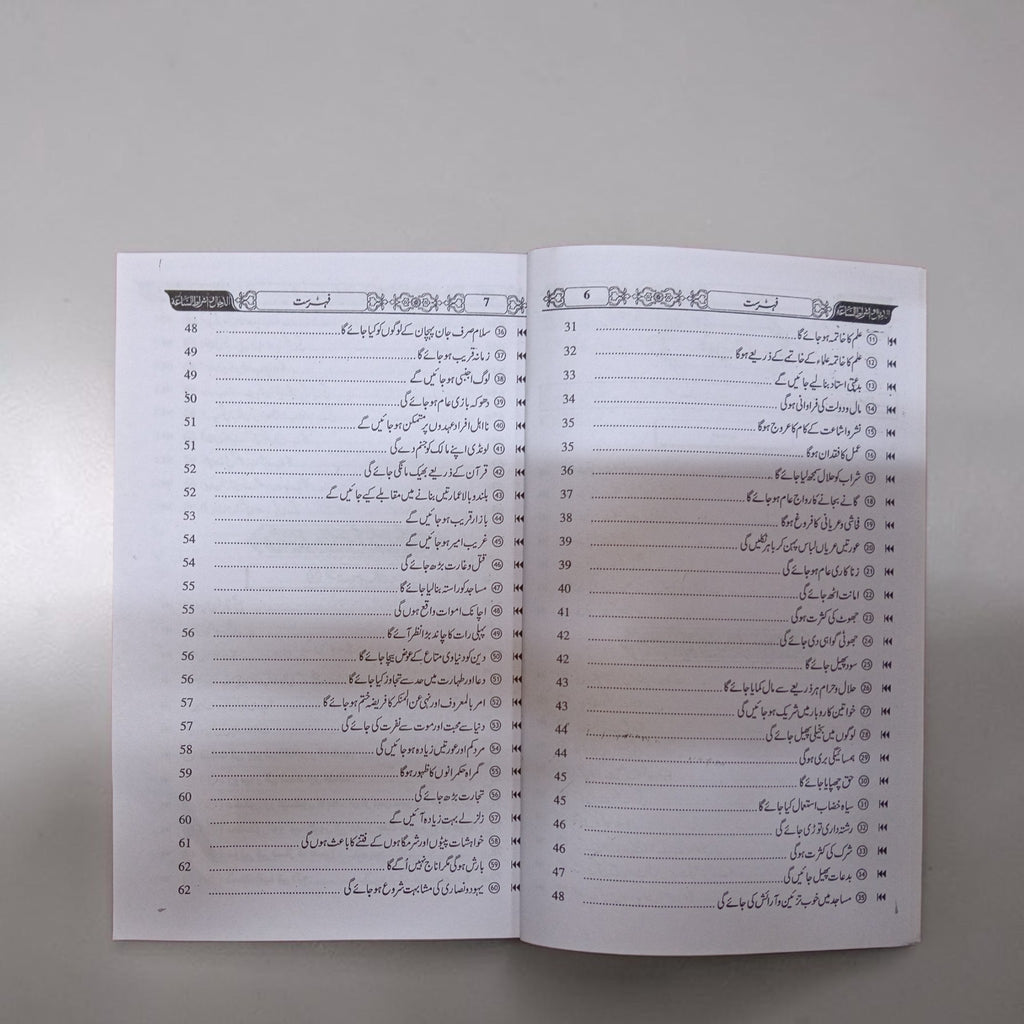 الدجال و اشراط الساعة فہرست 6
⑪ علم کا خاتمہ ہو جائے گا 31
⑫ علم کا خاتمہ علماء کے خاتمے کے ذریعے ہوگا 32
⑬ بدعتی استاد بنا لیے جائیں گے 33
⑭ مال و دولت کی فراوانی ہوگی 34
⑮ نشر و اشاعت کے کام کا عروج ہوگا 35
⑯ عمل کا فقدان ہوگا 35
⑰ شراب کو حلال سمجھ لیا جائے گا 36
⑱ گانے بجانے کا رواج عام ہو جائے گا 37
⑲ فحاشی و عریانی کا فروغ ہوگا 38
⑳ عورتیں عریاں لباس پہن کر باہر نکلیں گی 39
㉑ زنا کاری عام ہو جائے گی 39
㉒ امانت اٹھ جائے گی 40
㉓ جھوٹ کی کثرت ہوگی 41
㉔ جھوٹی گواہی دی جائے گی 42
㉕ سود پھیل جائے گا 42
㉖ حلال و حرام ہر ذریعے سے مال کمایا جائے گا 43
㉗ خواتین کاروبار میں شریک ہو جائیں گی 43
㉘ لوگوں میں بخیلی پھیل جائے گی 44
㉙ ہمسائیگی بری ہوگی 44
㉚ حق چھپایا جائے گا 45
㉛ سیاہ خضاب استعمال کیا جائے گا 45
㉜ رشتہ داری توڑی جائے گی 46
㉝ شرک کی کثرت ہوگی 46
㉞ بدعات پھیل جائیں گی 47
㉟ مساجد میں خوب تزئین و آرائش کی جائے گی 48
الدجال و اشراط الساعة فہرست 7
㊱ سلام صرف جان پہچان کے لوگوں کو کیا جائے گا 48
㊲ زمانہ قریب ہو جائے گا 49
㊳ لوگ اجنبی ہو جائیں گے 49
㊴ دھوکہ بازی عام ہو جائے گی 50
㊵ نا اہل افراد عہدوں پر متمکن ہو جائیں گے 51
㊶ لونڈی اپنے مالک کو جنم دے گی 51
㊷ قرآن کے ذریعے بھیک مانگی جائے گی 52
㊸ بلند و بالا عمارتیں بنانے میں مقابلے کیے جائیں گے 52
㊹ بازار قریب ہو جائیں گے 53
㊺ غریب امیر ہو جائیں گے 54
㊻ قتل و غارت بڑھ جائے گی 54
㊼ مساجد کو راستہ بنا لیا جائے گا 55
㊽ اچانک اموات واقع ہوں گی 55
㊾ پہلی رات کا چاند بڑا نظر آئے گا 56
㊿ دین کو دنیاوی متاع کے عوض بیچا جائے گا 56
51 دعا اور طہارت میں حد سے تجاوز کیا جائے گا 56
52 امر بالمعروف اور نہی عن المنکر کا فریضہ ختم ہو جائے گا 57
53 دنیا سے محبت اور موت سے نفرت کی جائے گی 57
54 مرد کم اور عورتیں زیادہ ہو جائیں گی 58
55 گمراہ حکمرانوں کا ظہور ہوگا 59
56 تجارت بڑھ جائے گی 60
57 زلزلے بہت زیادہ آئیں گے 60
58 خواہشات پیٹوں اور شرمگاہوں کے فتنے کا باعث ہوں گی 61
59 بارش ہوگی مگر اناج نہیں اُگے گا 62
60 یہود و نصاریٰ کی مشابہت شروع ہو جائے گی 62